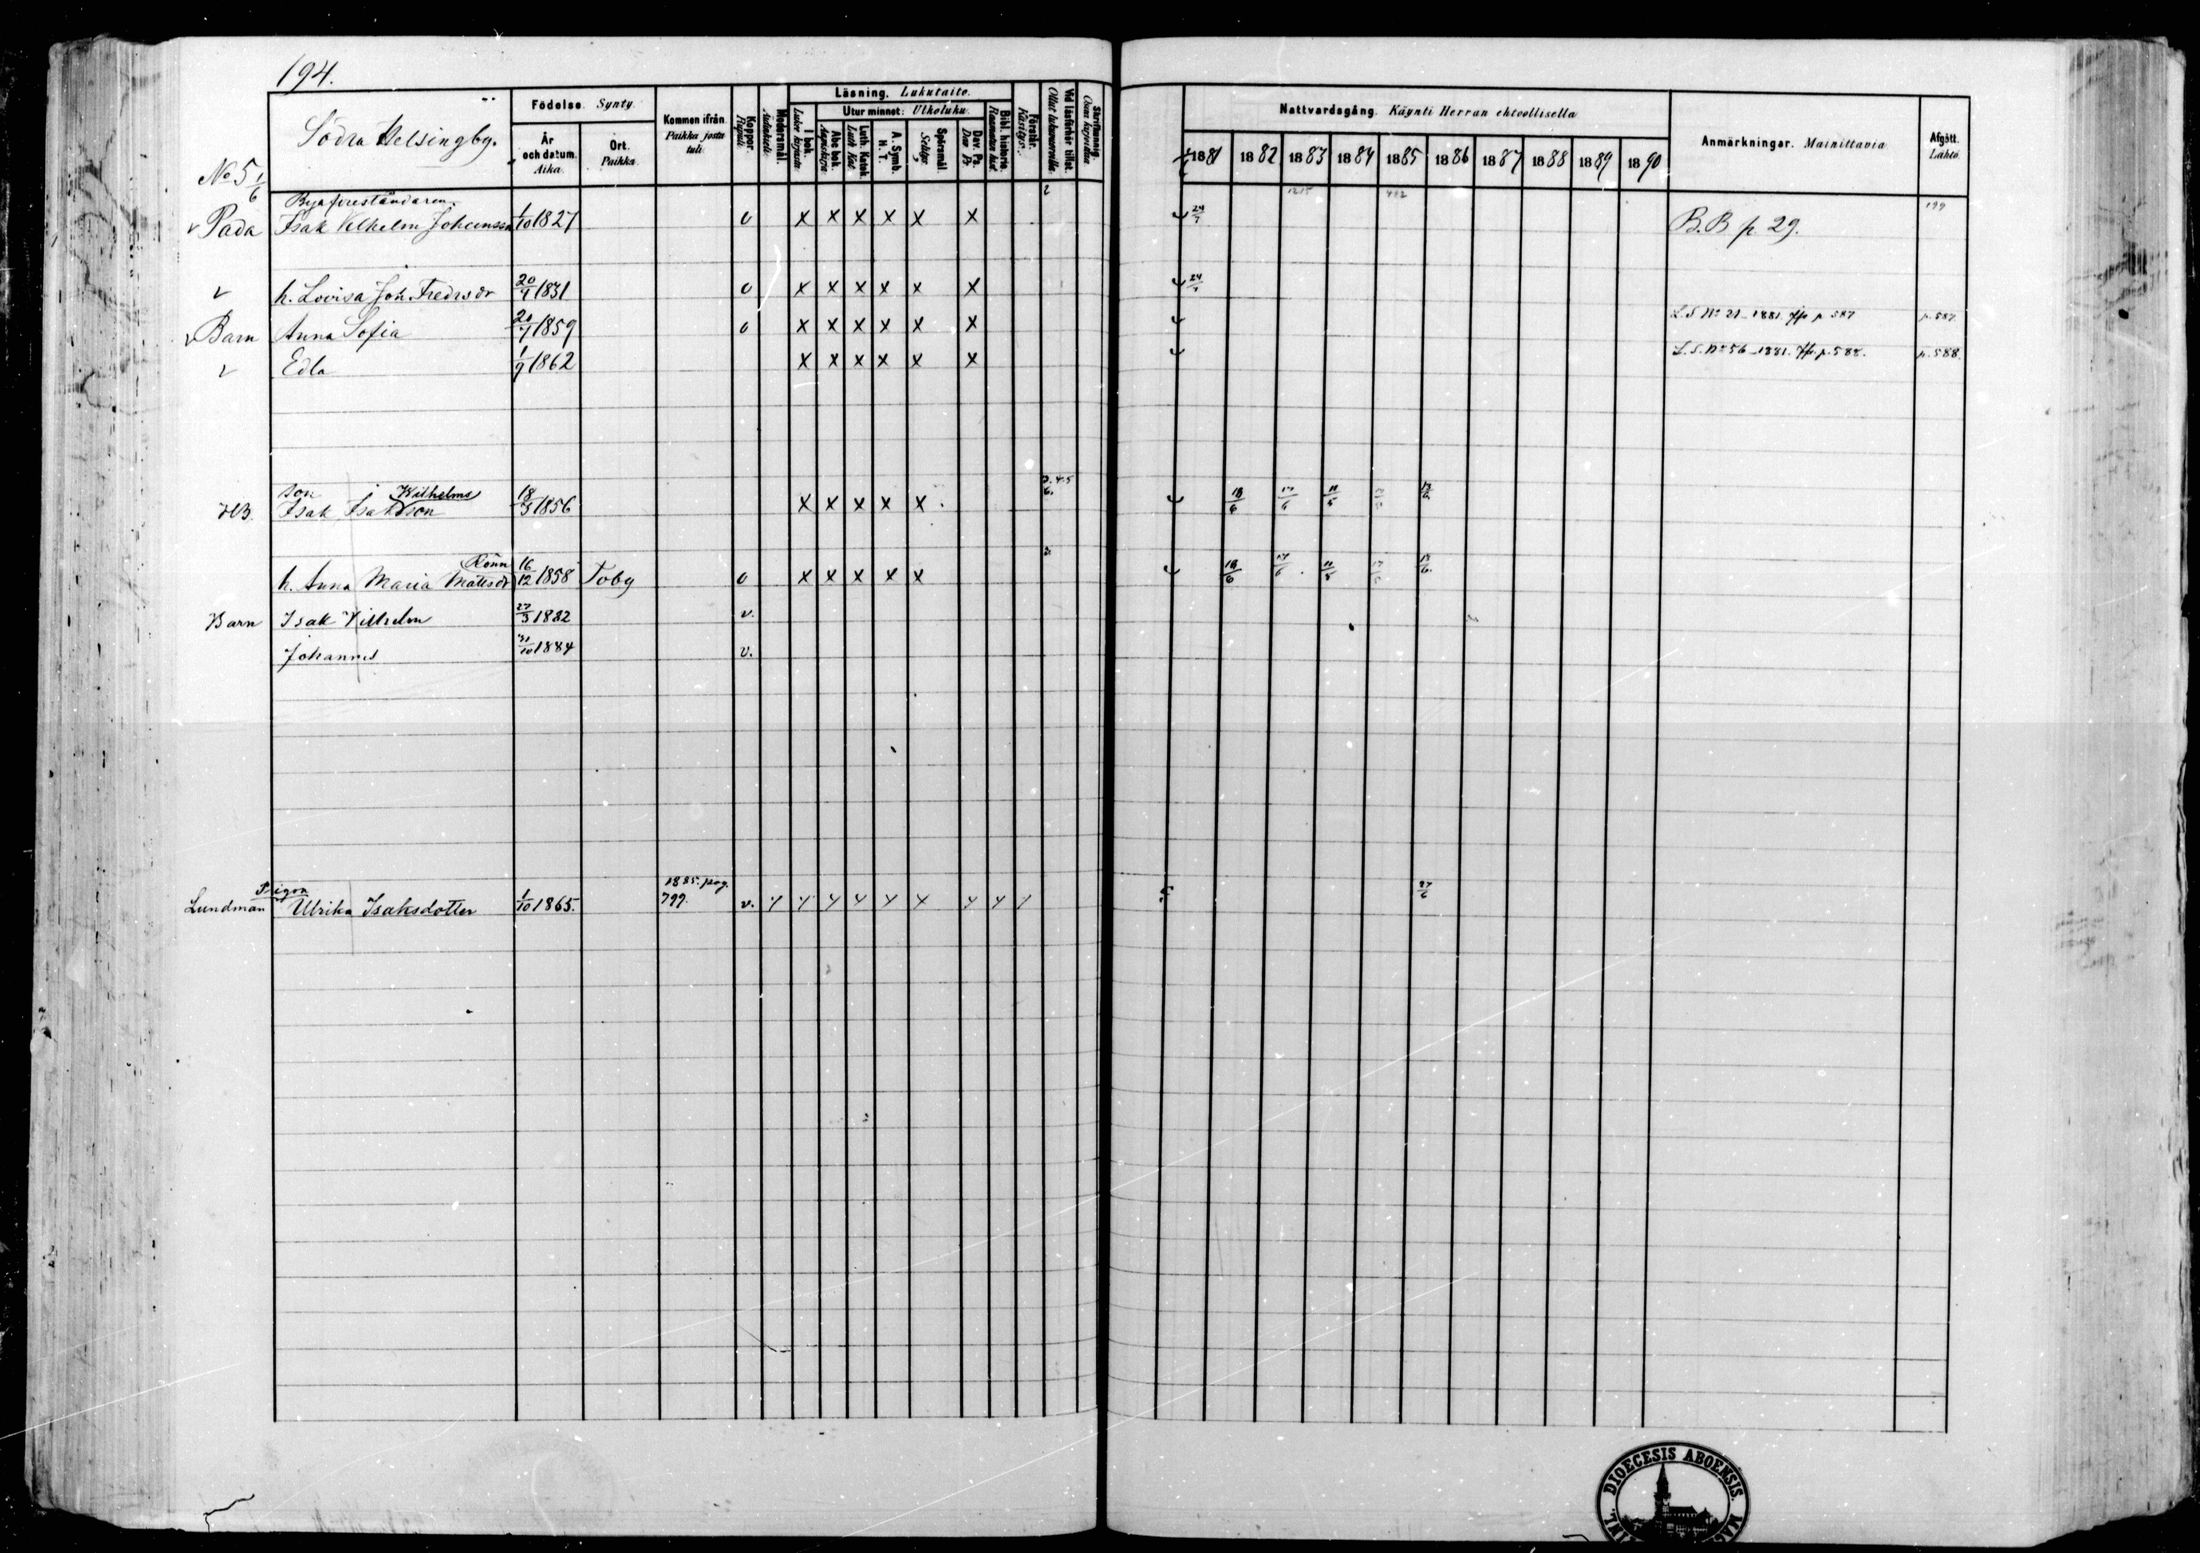 194.
Södra Helsingby.
No 5 1/6
Födelse. Synty.
År och datum. Aika.
Ort. Paikka.
Kommen ifrån. Paikka josta tuli.
Koppor. Rupuli.
Modersmål.
Läsning. Lukutaito.
I bok.
Utur minnet: Ulkoluku.
Abc bok.
Luth. Katek. Luth. Kat.
A. Symb. H. T.
Spörsmål.
Dav. Ps. Dav. Ps.
Bibl. historia.
Förstår. Käsitys.
Vid läsförhör tillst.
Nattvardsgång. Käynti Herran ehtoollisella
1881 1882 1883 1884 1885 1886 1887 1888 1889 1890
Anmärkningar. Mainittavia
Afgått. Lähtö.
Byaföreståndaren
v Pada Isak Vilhelm Johansson 1/10 1827 v x x x x x x 24/7 B.B p. 29. 199
v h. Lovisa Joh. Fredrsdr 20/9 1831 v x x x x x x 24/7
v Barn Anna Sofia 20/7 1859 v x x x x x x L.S. No 21 1881. p 587 p. 587
v Edla 1/9 1862 x x x x x x L.S. No 56 1881. p. 588. p. 588.
son Wilhelms
HB. Isak Isaksson 18/3 1856 x x x x x 18/6 17/6 11/5
Rönn
h. Anna Maria Mattsdr 16/12 1858 Toby v x x x x x 18/6 17/6 11/5
Barn Isak Vilhelm 27/3 1882 v.
Johannes 31/10 1884 v.
Pigon 1885. pag.
Lundman Ulrika Isaksdotter 1/10 1865. 799. v. 27/6
DIOECESIS ABOENSIS.